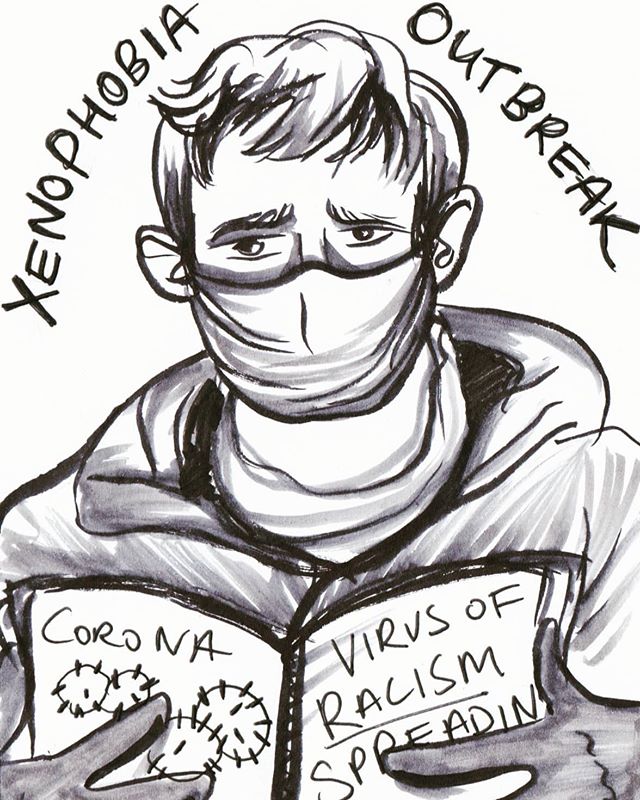 XENOPHOBIA
OUTBREAK
CORONA
VIRUS OF
RACISM
SPREADIN